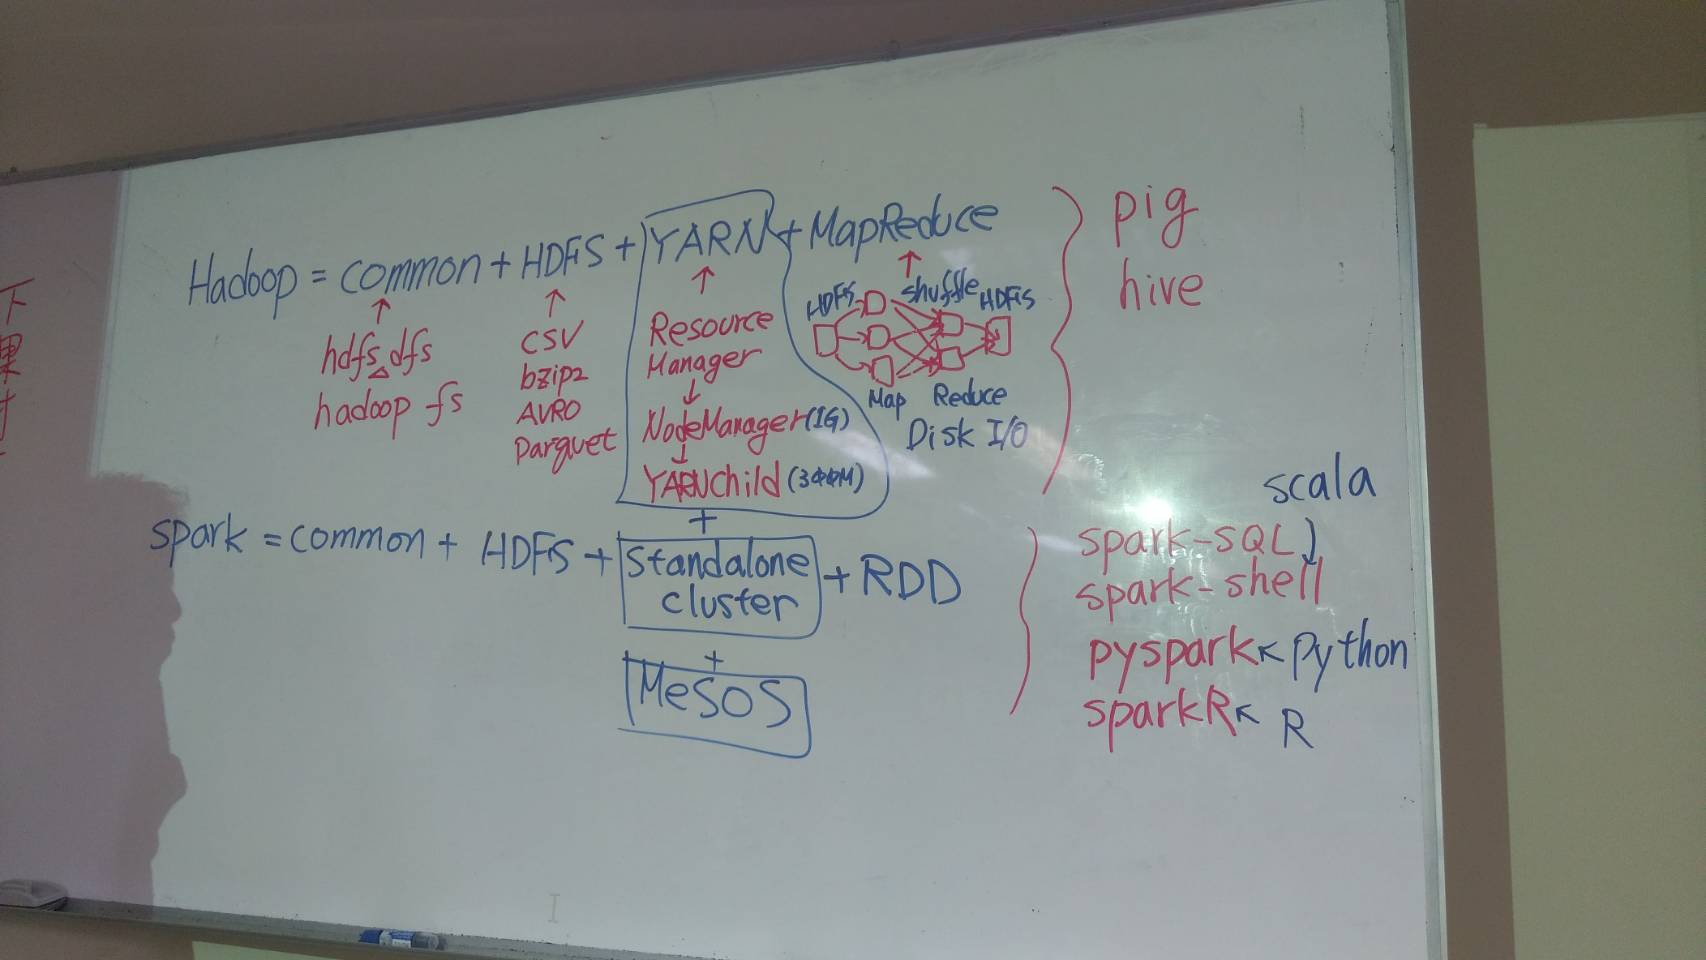 Hadoop = common + HDFS + YARN + MapReduce
hdfs dfs
hadoop fs
CSV
bzip2
AVRO
Parquet
Resource
Manager
NodeManager (1G)
YARNchild (300M)
HDFS
shuffle
HDFS
Map
Reduce
Disk I/O
pig
hive
+
spark = common + HDFS + Standalone
cluster + RDD
+
MeSOS
scala
spark-SQL
spark-shell
pyspark ← Python
sparkR ← R
下
果